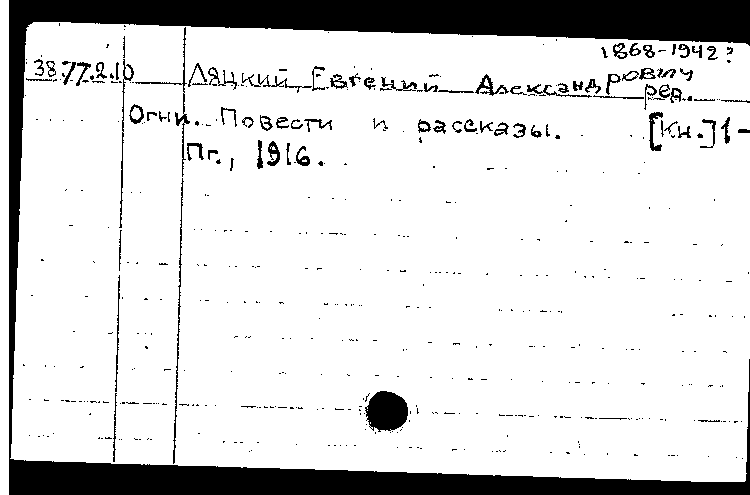 1868-1942?
38.77.2.10 Ляцкий, Евгений Александрович
ред.
Огни. Повести и рассказы. [Кн.] 1-
Пг., 1916.